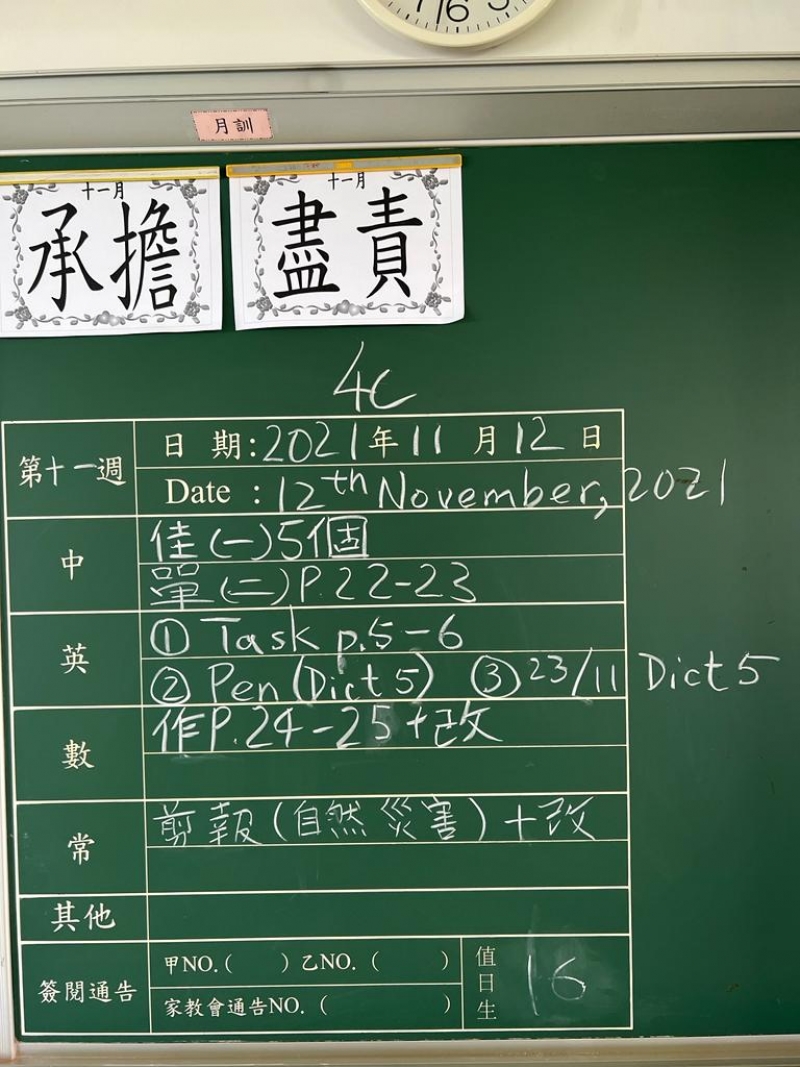 7 6 5
月訓
十一月
承擔
十一月
盡責
4C
第十一週
日 期:2021年11月12日
Date : 12th November, 2021
中
佳(一)5個
單(二)P.22-23
英
① Task p.5-6
② Pen (Dict 5) ③ 23/11 Dict 5
數
作P.24-25+改
常
剪報(自然災害)+改
其他
簽閱通告
甲NO.( ) 乙NO. ( )
家教會通告NO. ( )
值日生
16